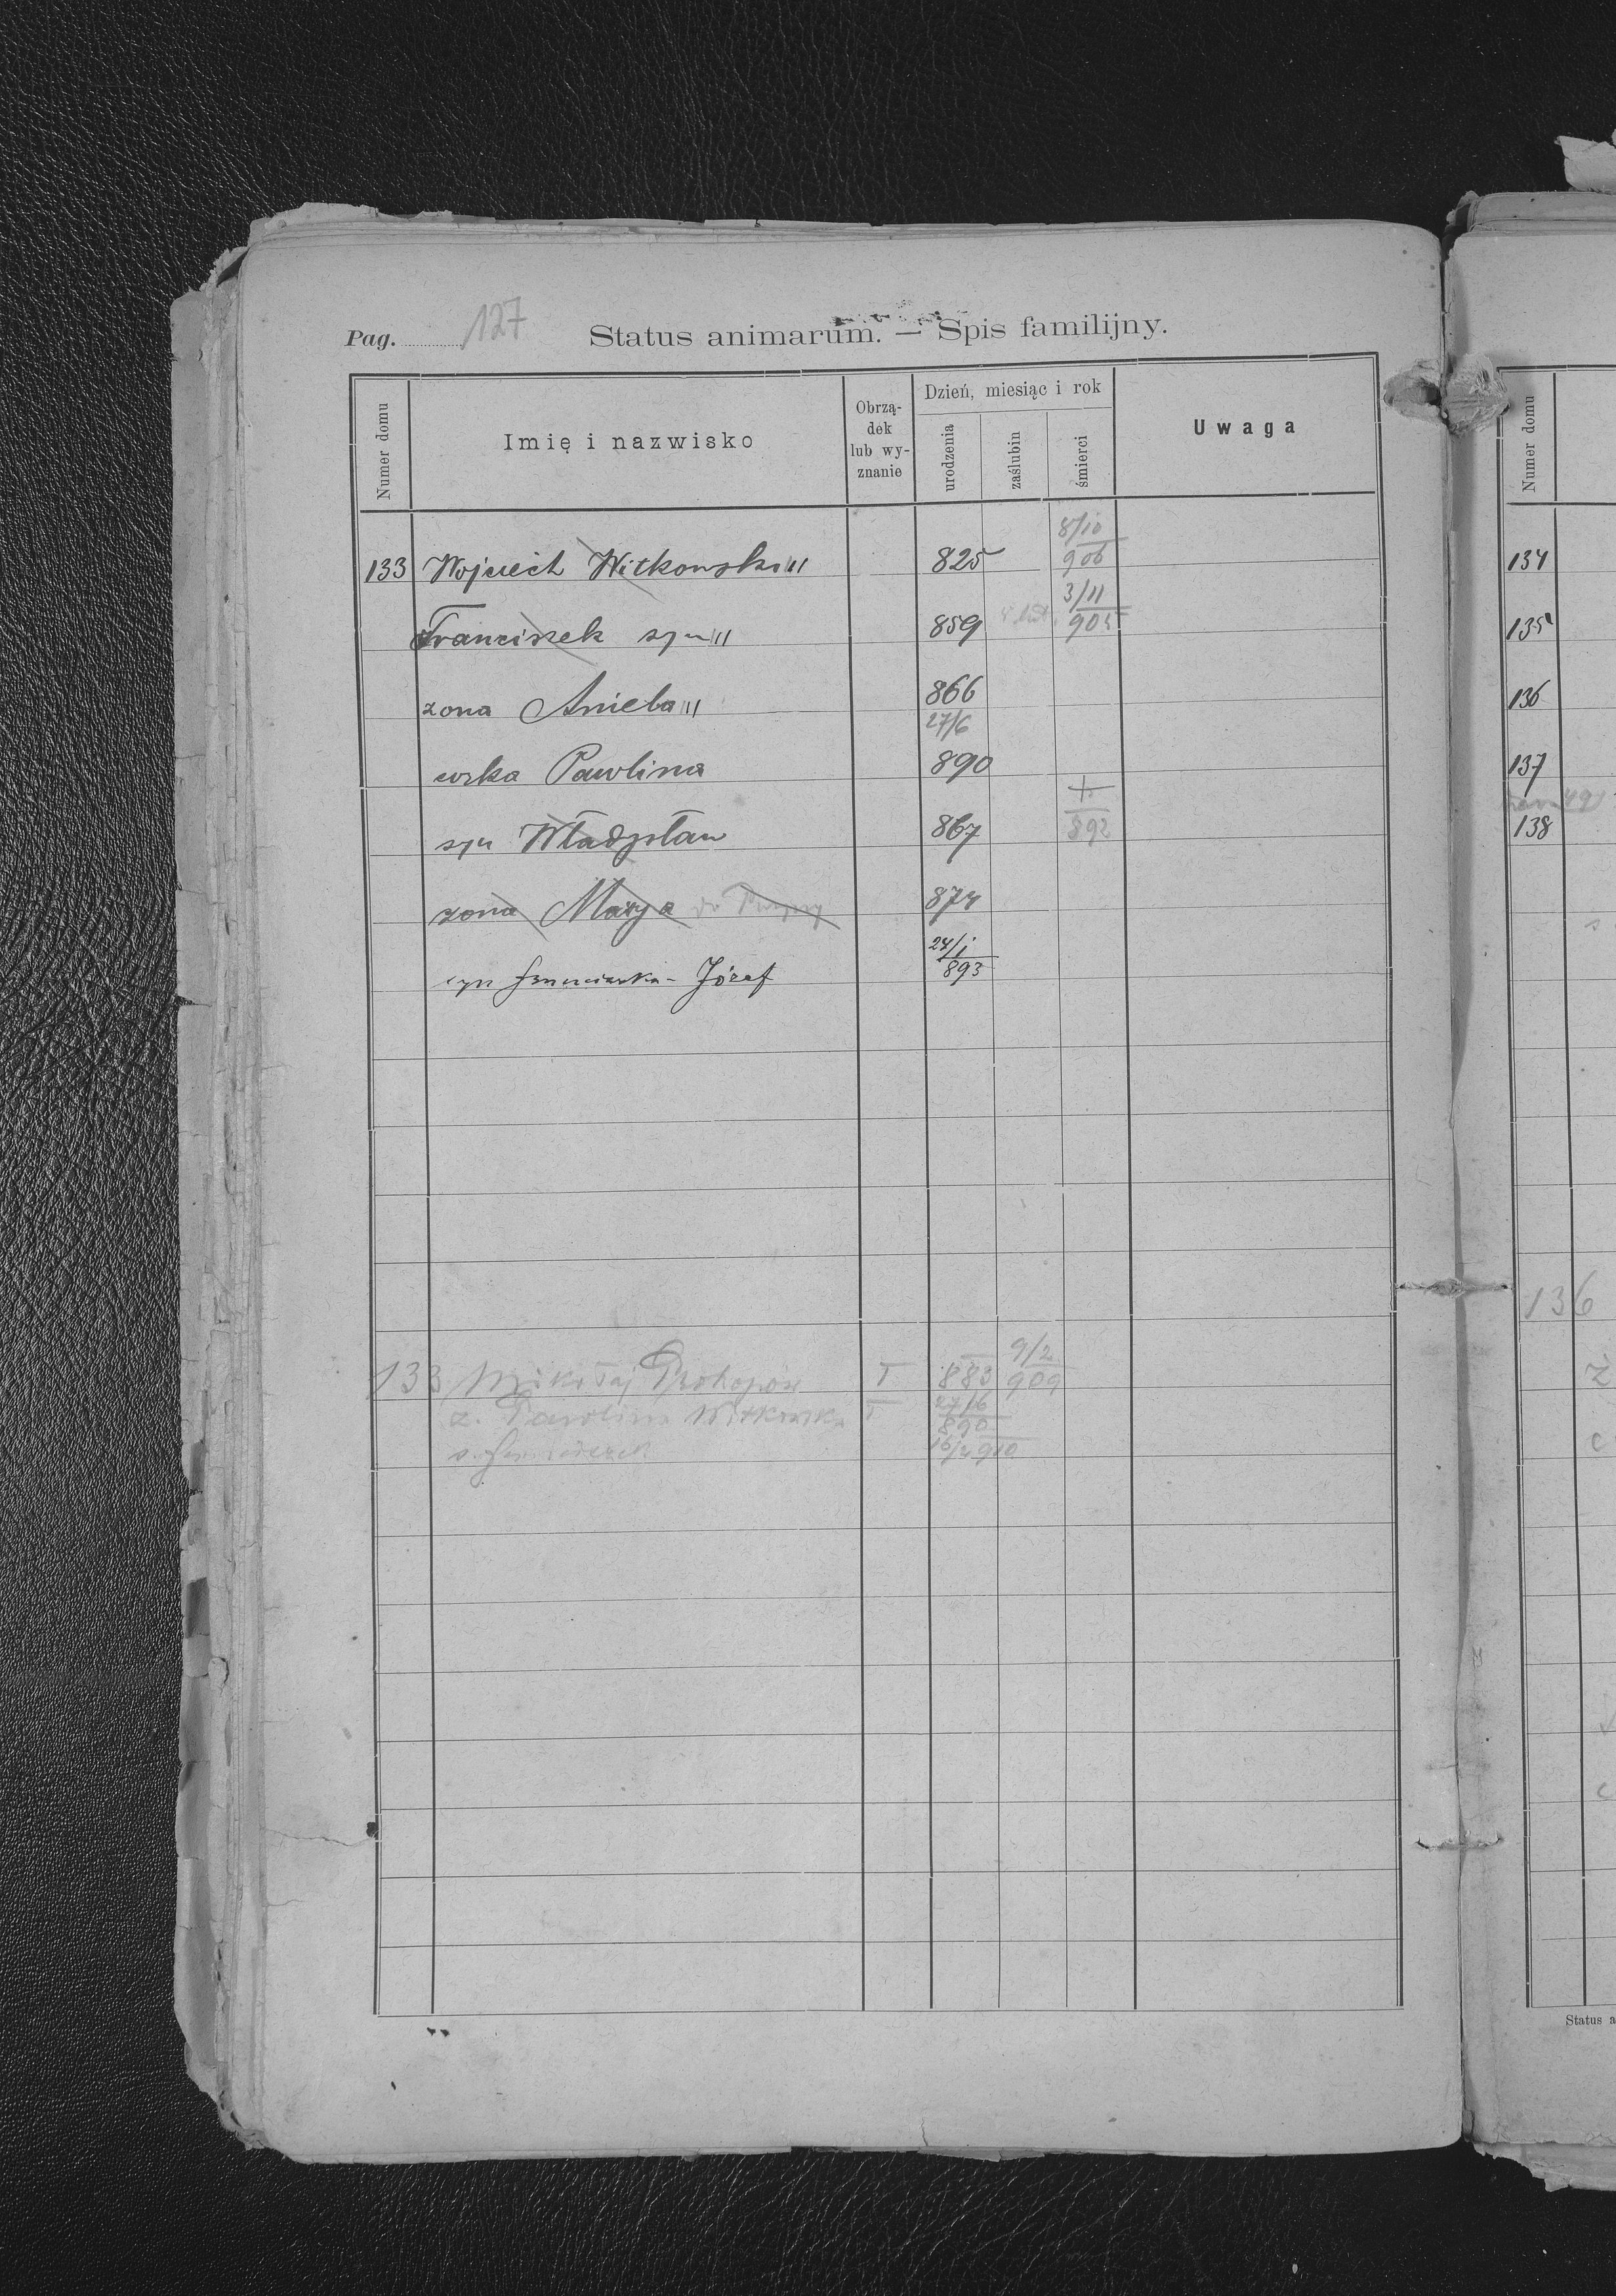 Pag. 127 Status animarum. — Spis familijny.
Numer domu
Imię i nazwisko
Obrzą-
dek
lub wy-
znanie
Dzień, miesiąc i rok
urodzenia
zaślubin
śmierci
Uwaga
8/10
133 Wojciech Witkowski 825 906
3/11
Franciszek syn 859 905
żona Aniela 866
27/6
córka Pawlina 890
+
syn Władysław 867 892
żona Marya do 874
24/1
syn Franciszka - Józef 893
9/2
133 Mikołaj Prokopów T 883 909
27/6
ż. Pawlina Witkowska T 890
s. 16/4 910
Numer domu
134
135
136
137
138
136
Status a